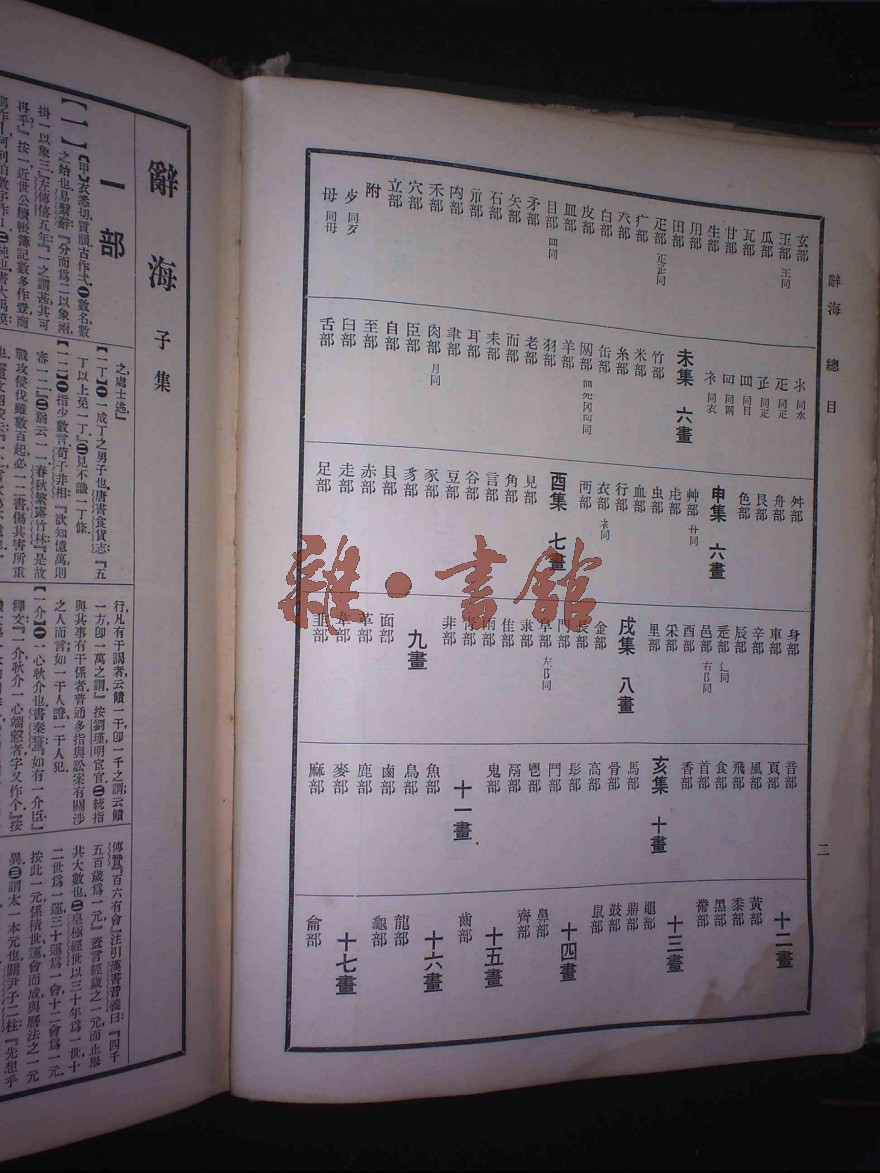 辭海 總目
玄部
玉部 王同
瓜部
瓦部
甘部
生部
用部
田部
疋部
疒部
癶部
白部
皮部
皿部
目部 罒同
矛部
矢部
石部
示部
禸部
禾部
穴部
立部
附
歺 同歹
母 同毋
氺 同水
罒 同目
衤 同衣
未集 六畫
竹部
米部
糸部
缶部
网部
羊部
羽部
老部
而部
耒部
耳部
聿部
肉部 月同
臣部
自部
至部
臼部
舌部
舛部
舟部
艮部
色部
申集 六畫
艸部 艹同
虍部
虫部
血部
行部
衣部 衤同
襾部
酉集 七畫
見部
角部
言部
谷部
豆部
豕部
豸部
貝部
赤部
走部
足部
身部
車部
辛部
辰部
辵部 辶同
邑部 右阝同
酉部
釆部
里部
戌集 八畫
金部
長部
門部
阜部 左阝同
隶部
隹部
雨部
靑部
非部
九畫
面部
革部
韋部
韭部
音部
頁部
風部
飛部
食部
首部
香部
亥集 十畫
馬部
骨部
高部
髟部
鬥部
鬯部
鬲部
鬼部
十一畫
魚部
鳥部
鹵部
鹿部
麥部
麻部
十二畫
黃部
黍部
黑部
黹部
十三畫
黽部
鼎部
鼓部
鼠部
十四畫
鼻部
齊部
十五畫
齒部
十六畫
龍部
龜部
十七畫
龠部
二
雜·書館
辭海 子集
一部
之處士逃』
【一丁】㊀一成丁之男子也唐書食貨志：『五
丁以上免一丁』㊁見不識一丁條
【一二】㊀指少數言荀子非相：『欲知億萬則
審一二』㊁猶云一一春秋繁露竹林：『是故
戰攻侵伐雖數百起必一二書傷其害所重
行凡有干謁者云饋一干卽一千之謂云饋
一方卽一萬之謂』按劉瑾明宦官㊁統指
與其事有干係者普通多指與訟案有關涉
之人而言如一干人證一干人犯
【一介】㊀一心耿介也書秦誓『如有一介臣』
釋文『一介耿介一心端愨者字又作个』按
傳贊『百六有會』注引漢書音義曰：『四千
五百歲爲一元』蓋言經歲之一元而止舉
其大數也㊁皇極經世以三十年爲一世十
二世爲一運三十運爲一會十二會爲一元
按此一元係積世運會而成與曆法之一元
異㊂謂太一本元也關尹子二柱：『先想乎